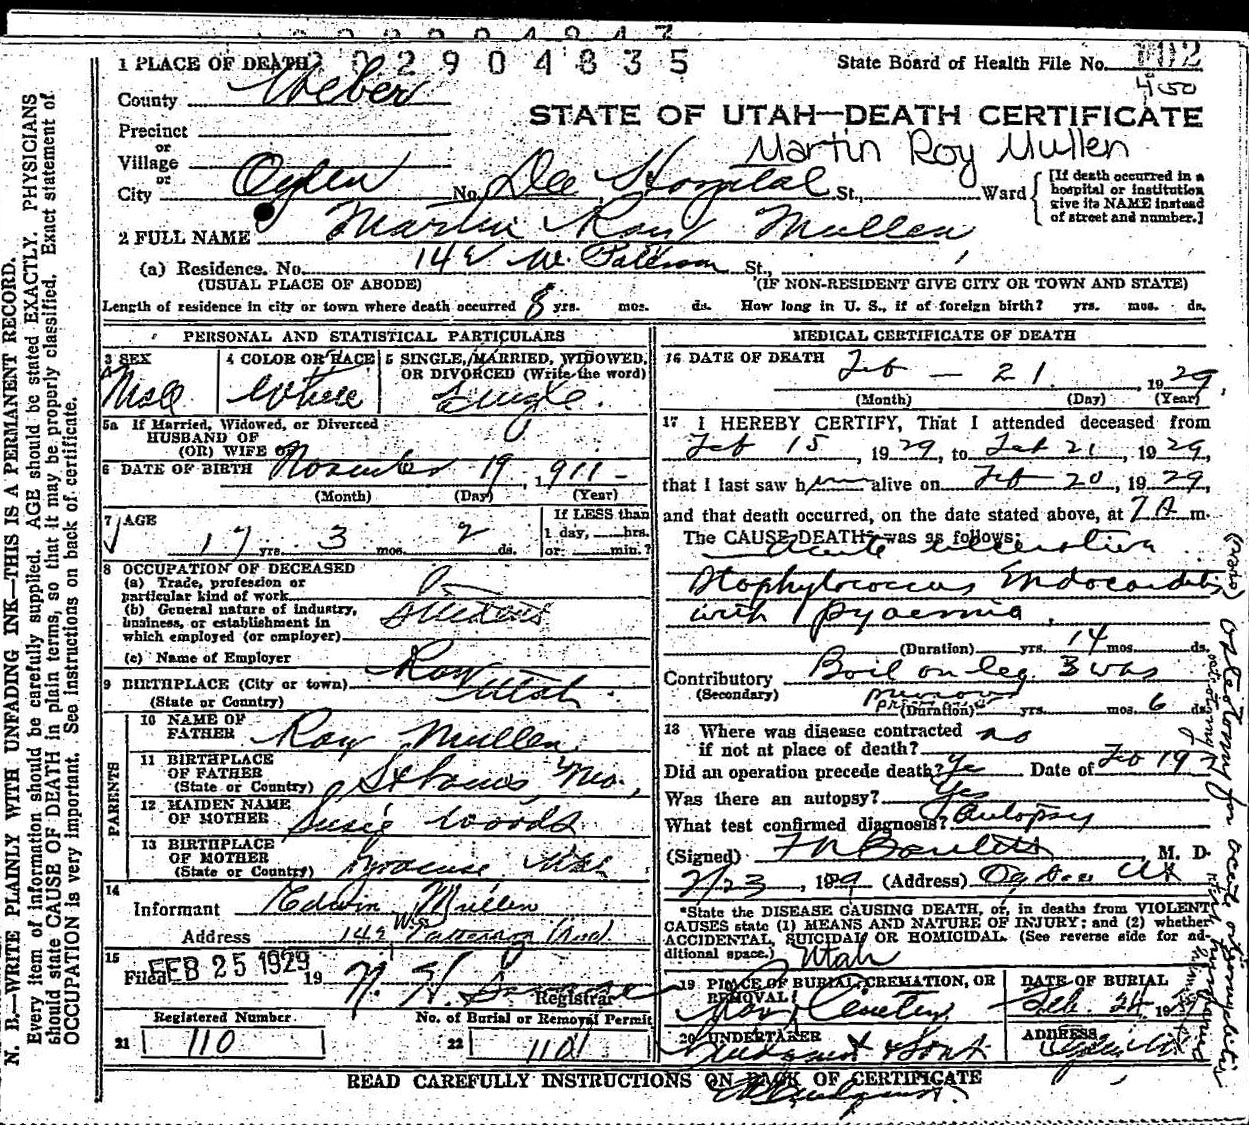 1 PLACE OF DEATH
2 0 2 9 0 4 8 3 5
State Board of Health File No. 102
450
County Weber
STATE OF UTAH—DEATH CERTIFICATE
Precinct
or
Village
or
Martin Roy Mullen
City Ogden No. Dee Hospital St., Ward
[If death occurred in a
hospital or institution
give its NAME instead
of street and number.]
2 FULL NAME Martin Roy Mullen
(a) Residence. No. 142 W. Patterson St.,
(USUAL PLACE OF ABODE) (IF NON-RESIDENT GIVE CITY OR TOWN AND STATE)
Length of residence in city or town where death occurred 8 yrs. mos. ds. How long in U. S., if of foreign birth? yrs. mos. ds.
PERSONAL AND STATISTICAL PARTICULARS
3 SEX
Male
4 COLOR OR RACE
White
5 SINGLE, MARRIED, WIDOWED,
OR DIVORCED (Write the word)
Single.
5a If Married, Widowed, or Divorced
HUSBAND OF
(OR) WIFE OF
6 DATE OF BIRTH November 19, 1911
(Month) (Day) (Year)
7 AGE
17 yrs. 3 mos. 2 ds.
If LESS than
1 day, hrs.
or min.?
8 OCCUPATION OF DECEASED
(a) Trade, profession or
particular kind of work
(b) General nature of industry,
business, or establishment in
which employed (or employer)
Student
(c) Name of Employer
9 BIRTHPLACE (City or town) Roy
(State or Country) Utah.
PARENTS
10 NAME OF
FATHER Roy Mullen
11 BIRTHPLACE
OF FATHER
(State or Country) St Louis, Mo.,
12 MAIDEN NAME
OF MOTHER Susie Woods
13 BIRTHPLACE
OF MOTHER
(State or Country) Syracuse Utah
14
Informant Edwin Mullen
Address 142 W. Patterson
15
Filed FEB 25 1929 19
Registrar
Registered Number
21 110
No. of Burial or Removal Permit
22 110
MEDICAL CERTIFICATE OF DEATH
16 DATE OF DEATH Feb — 21, 1929
(Month) (Day) (Year)
17 I HEREBY CERTIFY, That I attended deceased from
Feb 15, 1929, to Feb 21, 1929,
that I last saw him alive on Feb 20, 1929,
and that death occurred, on the date stated above, at 7 A m.
The CAUSE DEATH* was as follows:
Acute ulcerative
Staphylococcus Endocarditis
with pyaemia
(Duration) yrs. mos. 14 ds.
Contributory Boil on leg 3 wks
(Secondary) previous
(Duration) yrs. mos. 6 ds.
18 Where was disease contracted
if not at place of death? no
Did an operation precede death? Yes Date of Feb 19
Was there an autopsy? Yes
What test confirmed diagnosis? Autopsy
(Signed) M. D.
2/23, 1929 (Address) Ogden Ut
*State the DISEASE CAUSING DEATH, or, in deaths from VIOLENT
CAUSES state (1) MEANS AND NATURE OF INJURY; and (2) whether
ACCIDENTAL, SUICIDAL OR HOMICIDAL. (See reverse side for ad-
ditional space.)
Utah
19 PLACE OF BURIAL, CREMATION, OR
REMOVAL
Roy Cemetery
DATE OF BURIAL
Feb. 24, 19
20 UNDERTAKER
& Sons
ADDRESS
Ogden
READ CAREFULLY INSTRUCTIONS ON BACK OF CERTIFICATE
N. B.—WRITE PLAINLY WITH UNFADING INK—THIS IS A PERMANENT RECORD.
Every item of information should be carefully supplied. AGE should be stated EXACTLY. PHYSICIANS
should state CAUSE OF DEATH in plain terms, so that it may be properly classified. Exact statement of
OCCUPATION is very important. See instructions on back of certificate.